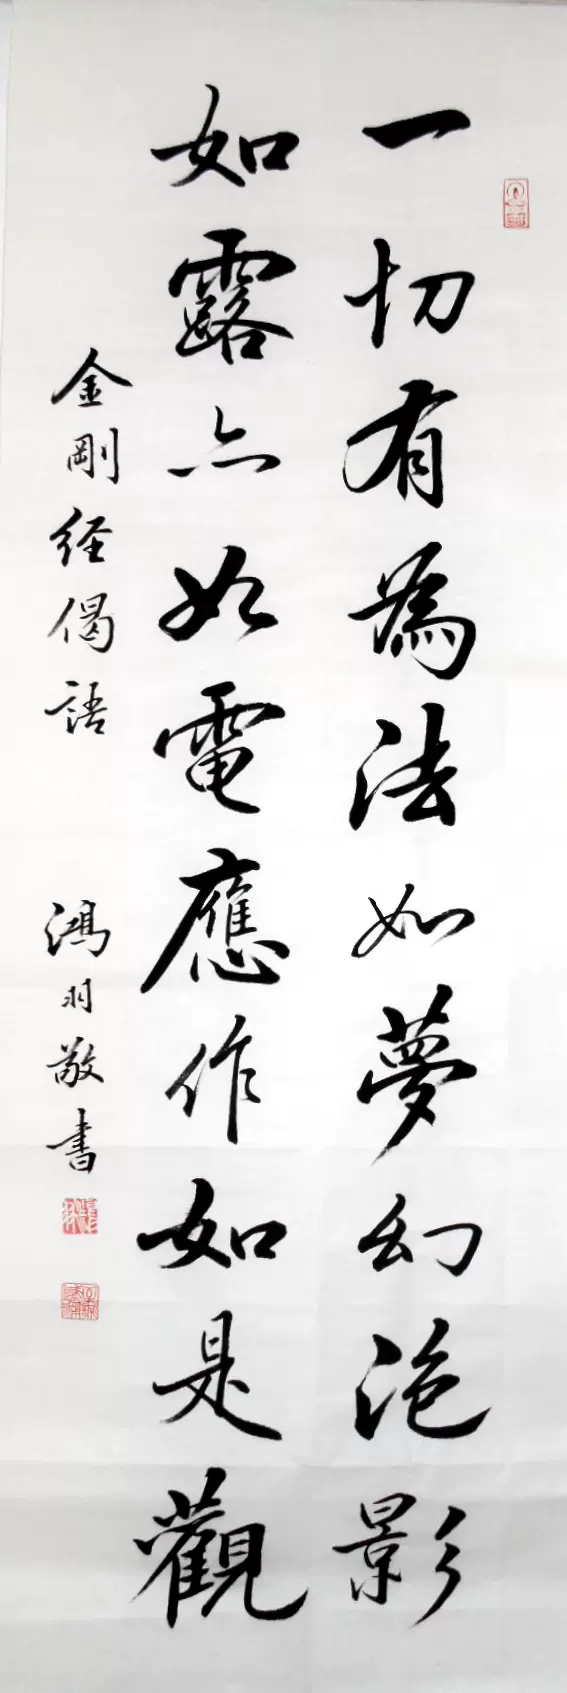 一切有為法如夢幻泡影
如露亦如電應作如是觀
金剛经偈語
鴻羽敬書